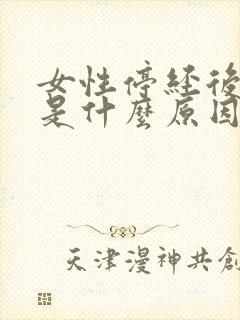 女性停经後
是什麼原因
天津漫神共創